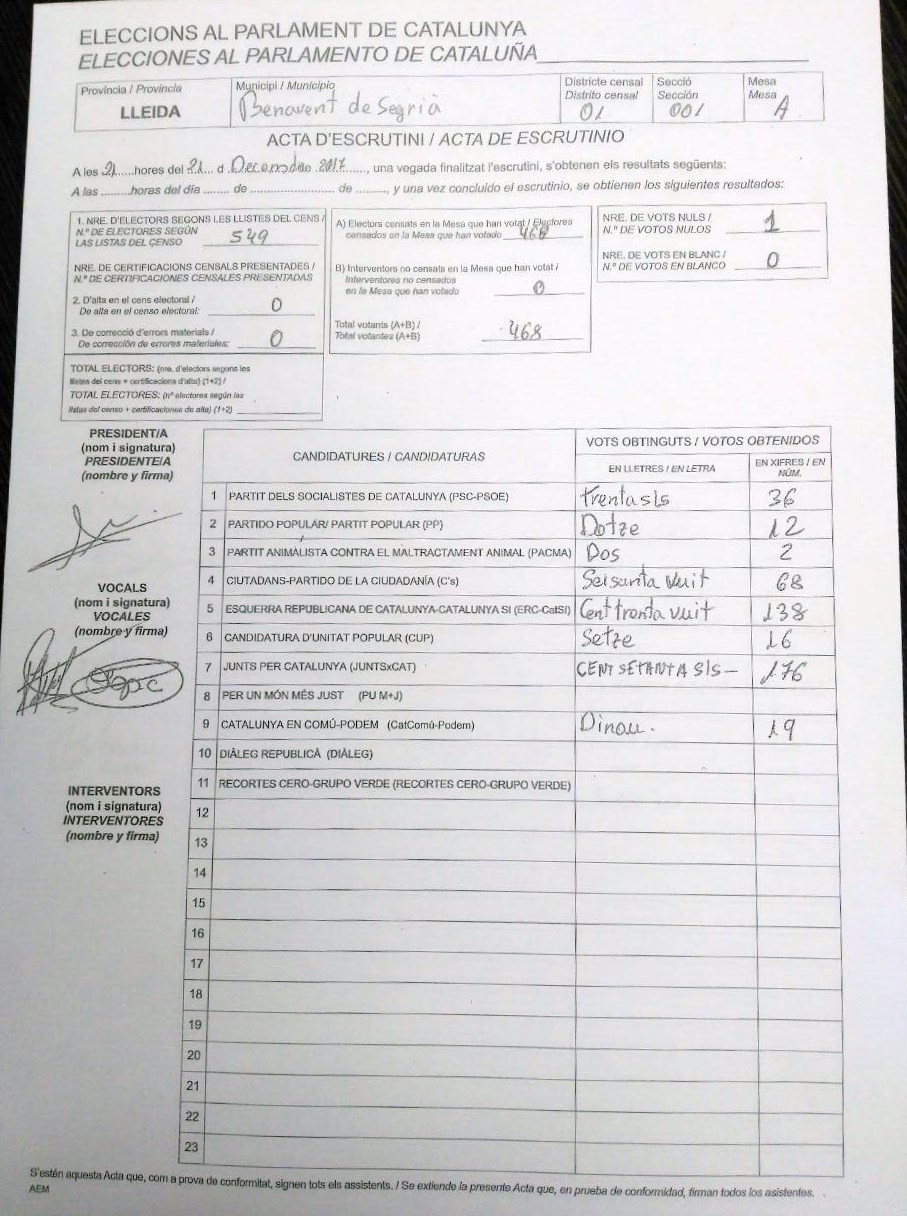 ELECCIONS AL PARLAMENT DE CATALUNYA
ELECCIONES AL PARLAMENTO DE CATALUÑA
Provincia / Provincia
LLEIDA
Municipi / Municipio
Benavent de Segrià
Districte censal
Distrito censal
01
Secció
Sección
001
Mesa
Mesa
A
ACTA D'ESCRUTINI / ACTA DE ESCRUTINIO
A les 21 hores del 21 d Decembre 2017, una vegada finalitzat l'escrutini, s'obtenen els resultats següents:
A las ........horas del día ........ de ........................ de ........, y una vez concluido el escrutinio, se obtienen los siguientes resultados:
1. NRE. D'ELECTORS SEGONS LES LLISTES DEL CENS /
N.º DE ELECTORES SEGÚN
LAS LISTAS DEL CENSO 549
NRE. DE CERTIFICACIONS CENSALS PRESENTADES /
N.º DE CERTIFICACIONES CENSALES PRESENTADAS
2. D'alta en el cens electoral /
De alta en el censo electoral: 0
3. De correcció d'errors materials /
De corrección de errores materiales: 0
TOTAL ELECTORS: (nre. d'electors segons les
llistes del cens + certificacions d'alta) (1+2) /
TOTAL ELECTORES: (nº electores según las
listas del censo + certificaciones de alta) (1+2)
A) Electors censats en la Mesa que han votat / Electores
censados en la Mesa que han votado 468
B) Interventors no censats en la Mesa que han votat /
Interventores no censados
en la Mesa que han votado 0
Total votants (A+B) /
Total votantes (A+B) 468
NRE. DE VOTS NULS /
N.º DE VOTOS NULOS 1
NRE. DE VOTS EN BLANC /
N.º DE VOTOS EN BLANCO 0
PRESIDENT/A
(nom i signatura)
PRESIDENTE/A
(nombre y firma)
VOCALS
(nom i signatura)
VOCALES
(nombre y firma)
INTERVENTORS
(nom i signatura)
INTERVENTORES
(nombre y firma)
CANDIDATURES / CANDIDATURAS
VOTS OBTINGUTS / VOTOS OBTENIDOS
EN LLETRES / EN LETRA
EN XIFRES / EN
NÚM.
1 PARTIT DELS SOCIALISTES DE CATALUNYA (PSC-PSOE) trentasis 36
2 PARTIDO POPULAR/ PARTIT POPULAR (PP) Dotze 12
3 PARTIT ANIMALISTA CONTRA EL MALTRACTAMENT ANIMAL (PACMA) Dos 2
4 CIUTADANS-PARTIDO DE LA CIUDADANÍA (C's) Seisanta Vuit 68
5 ESQUERRA REPUBLICANA DE CATALUNYA-CATALUNYA SI (ERC-CatSI) Cent trenta vuit 138
6 CANDIDATURA D'UNITAT POPULAR (CUP) Setze 16
7 JUNTS PER CATALUNYA (JUNTSxCAT) CENT SETANTA SIS– 176
8 PER UN MÓN MÉS JUST (PU M+J)
9 CATALUNYA EN COMÚ-PODEM (CatComú-Podem) Dinou. 19
10 DIÀLEG REPUBLICÀ (DIÀLEG)
11 RECORTES CERO-GRUPO VERDE (RECORTES CERO-GRUPO VERDE)
12
13
14
15
16
17
18
19
20
21
22
23
S'estén aquesta Acta que, com a prova de conformitat, signen tots els assistents. / Se extiende la presente Acta que, en prueba de conformidad, firman todos los asistentes.
AEM